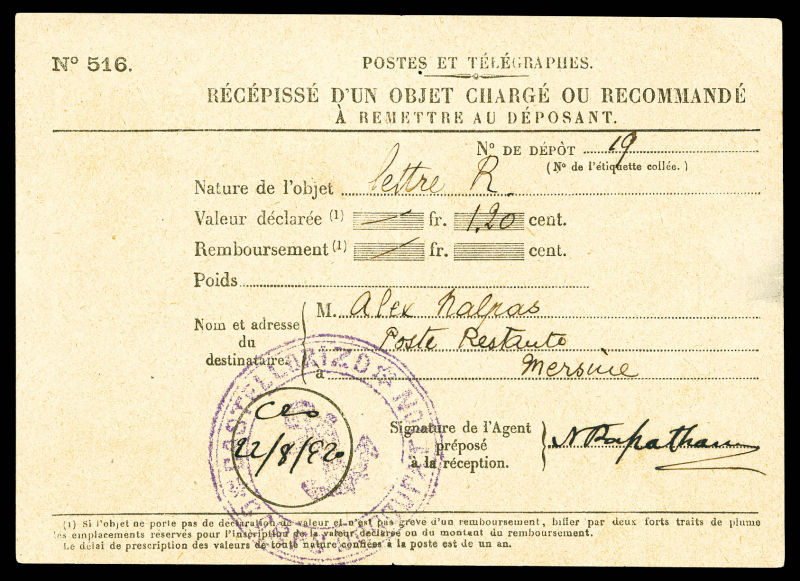 N° 516.
POSTES ET TÉLÉGRAPHES.
RÉCÉPISSÉ D'UN OBJET CHARGÉ OU RECOMMANDÉ
À REMETTRE AU DÉPOSANT.
N° DE DÉPÔT 19
(N° de l'étiquette collée.)
Nature de l'objet lettre R.
Valeur déclarée (1) — fr. 1.20 cent.
Remboursement (1) — fr. cent.
Poids
Nom et adresse du destinataire.
M. Alex Nalpas
Poste Restante
à Mersine
CASTELLORIZO
22/8/20
Signature de l'Agent
préposé
à la réception.
(1) Si l'objet ne porte pas de déclaration de valeur et n'est pas grevé d'un remboursement, biffer par deux forts traits de plume
les emplacements réservés pour l'inscription de la valeur déclarée ou du montant du remboursement.
Le délai de prescription des valeurs de toute nature confiées à la poste est de un an.